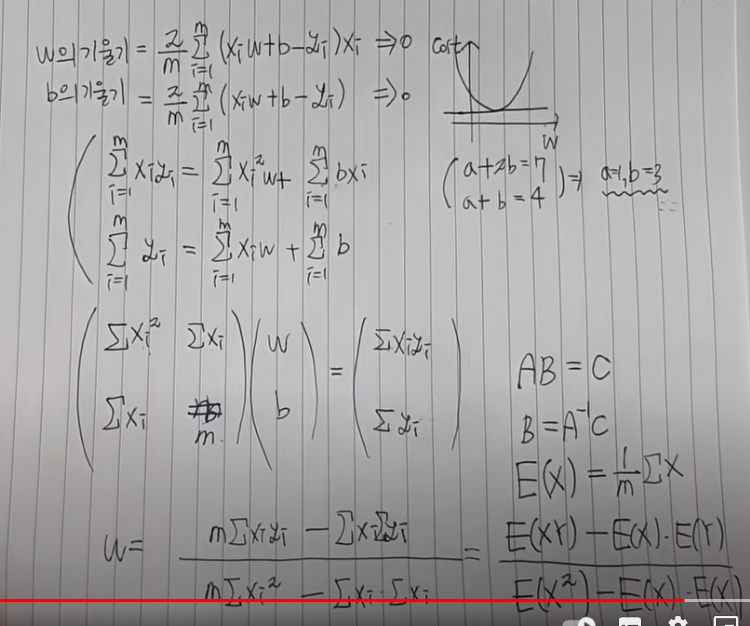 w의 기울기 = 2/m Σ_{i=1}^{m} (xᵢw+b−yᵢ)xᵢ ⇒0
b의 기울기 = 2/m Σ_{i=1}^{m} (xᵢw+b−yᵢ) ⇒0
cost
w
( Σ_{i=1}^{m} xᵢyᵢ = Σ_{i=1}^{m} xᵢ²w + Σ_{i=1}^{m} bxᵢ
Σ_{i=1}^{m} yᵢ = Σ_{i=1}^{m} xᵢw + Σ_{i=1}^{m} b
( a+2b=7
a+b=4 ) ⇒ a=1, b=3
( Σxᵢ² Σxᵢ ) ( w ) = ( Σxᵢyᵢ )
( Σxᵢ m ) ( b ) ( Σyᵢ )
AB = C
B = A⁻¹C
E(X) = 1/m ΣX
w = (mΣxᵢyᵢ − ΣxᵢΣyᵢ) / (mΣxᵢ² − Σxᵢ·Σxᵢ) = (E(XY)−E(X)·E(Y)) / (E(X²)−E(X)·E(X))